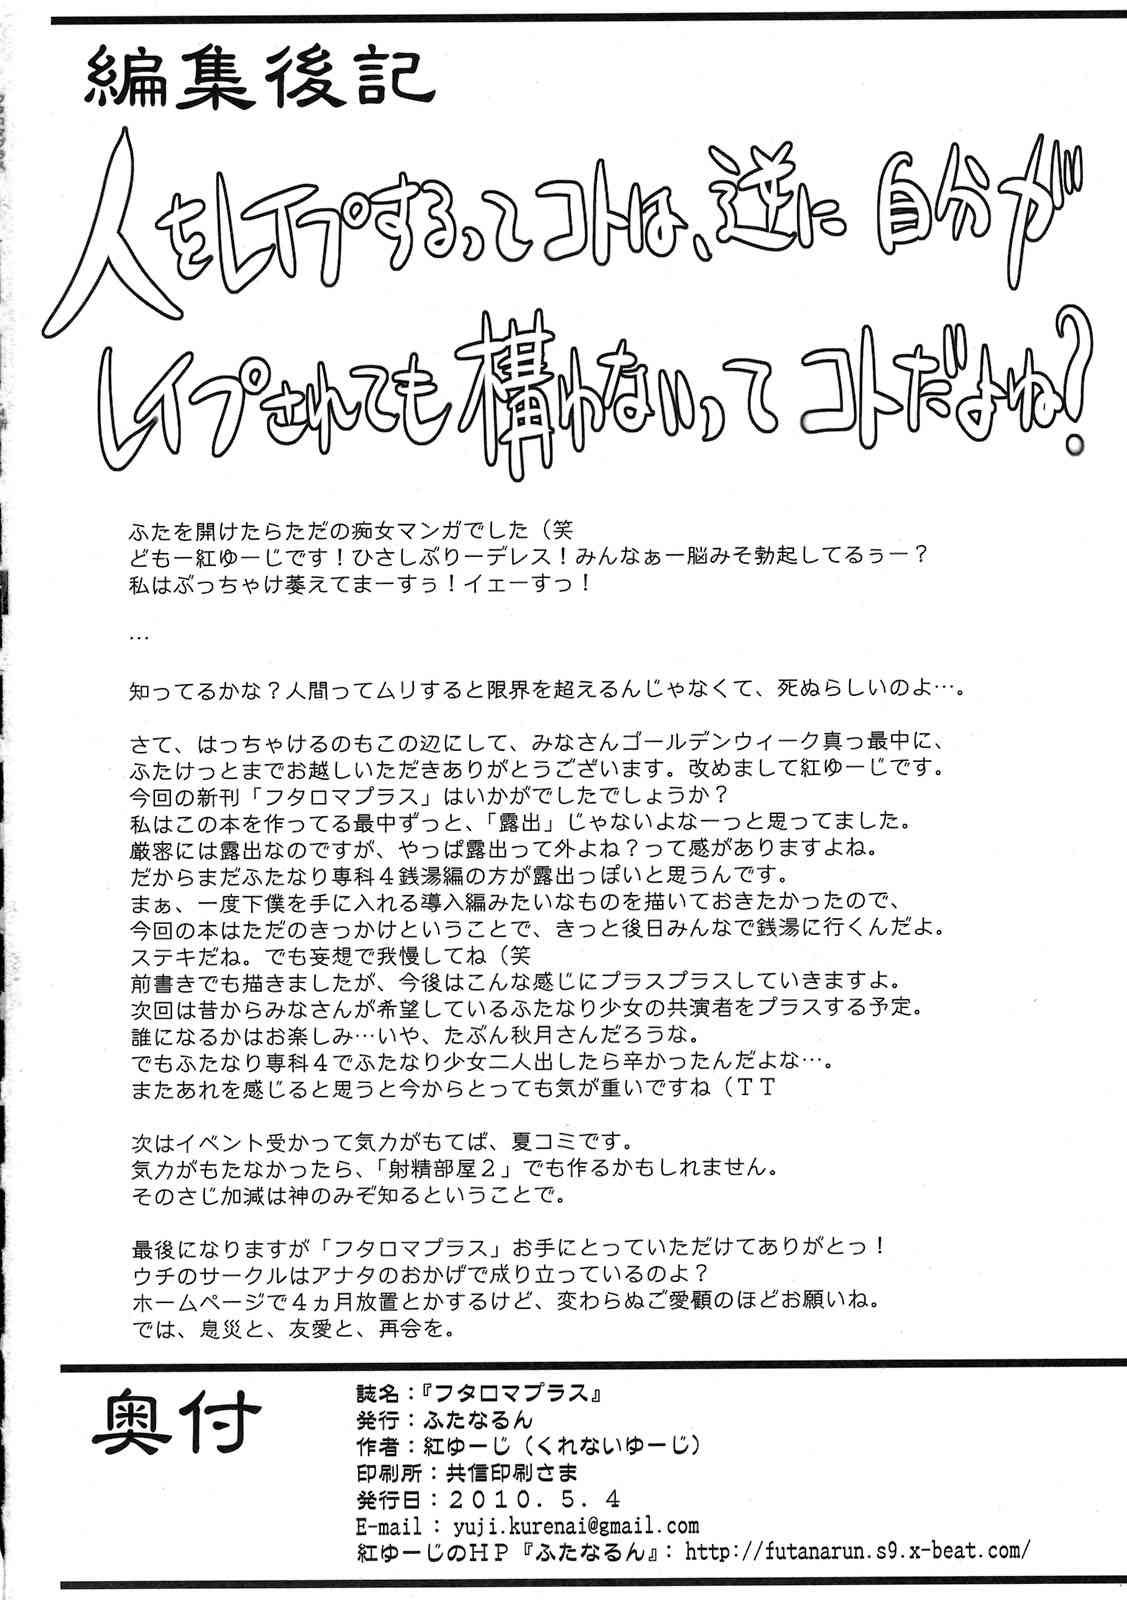 編集後記
人をレイプするってコトは、逆に自分が
レイプされても構わないってコトだよね?
ふたを開けたらただの痴女マンガでした（笑
どもー紅ゆーじです！ひさしぶりーデレス！みんなぁー脳みそ勃起してるぅー？
私はぶっちゃけ萎えてまーすぅ！イェーすっ！
…
知ってるかな？人間ってムリすると限界を超えるんじゃなくて、死ぬらしいのよ…。
さて、はっちゃけるのもこの辺にして、みなさんゴールデンウィーク真っ最中に、
ふたけっとまでお越しいただきありがとうございます。改めまして紅ゆーじです。
今回の新刊「フタロマプラス」はいかがでしたでしょうか？
私はこの本を作ってる最中ずっと、「露出」じゃないよなーっと思ってました。
厳密には露出なのですが、やっぱ露出って外よね？って感がありますよね。
だからまだふたなり専科４銭湯編の方が露出っぽいと思うんです。
まぁ、一度下僕を手に入れる導入編みたいなものを描いておきたかったので、
今回の本はただのきっかけということで、きっと後日みんなで銭湯に行くんだよ。
ステキだね。でも妄想で我慢してね（笑
前書きでも描きましたが、今後はこんな感じにプラスプラスしていきますよ。
次回は昔からみなさんが希望しているふたなり少女の共演者をプラスする予定。
誰になるかはお楽しみ…いや、たぶん秋月さんだろうな。
でもふたなり専科４でふたなり少女二人出したら辛かったんだよな…。
またあれを感じると思うと今からとっても気が重いですね（ＴＴ
次はイベント受かって気力がもてば、夏コミです。
気力がもたなかったら、「射精部屋２」でも作るかもしれません。
そのさじ加減は神のみぞ知るということで。
最後になりますが「フタロマプラス」お手にとっていただけてありがとっ！
ウチのサークルはアナタのおかげで成り立っているのよ？
ホームページで４ヵ月放置とかするけど、変わらぬご愛顧のほどお願いね。
では、息災と、友愛と、再会を。
奥付
誌名：『フタロマプラス』
発行：ふたなるん
作者：紅ゆーじ（くれないゆーじ）
印刷所：共信印刷さま
発行日：２０１０．５．４
E-mail : yuji.kurenai@gmail.com
紅ゆーじのＨＰ『ふたなるん』: http://futanarun.s9.x-beat.com/